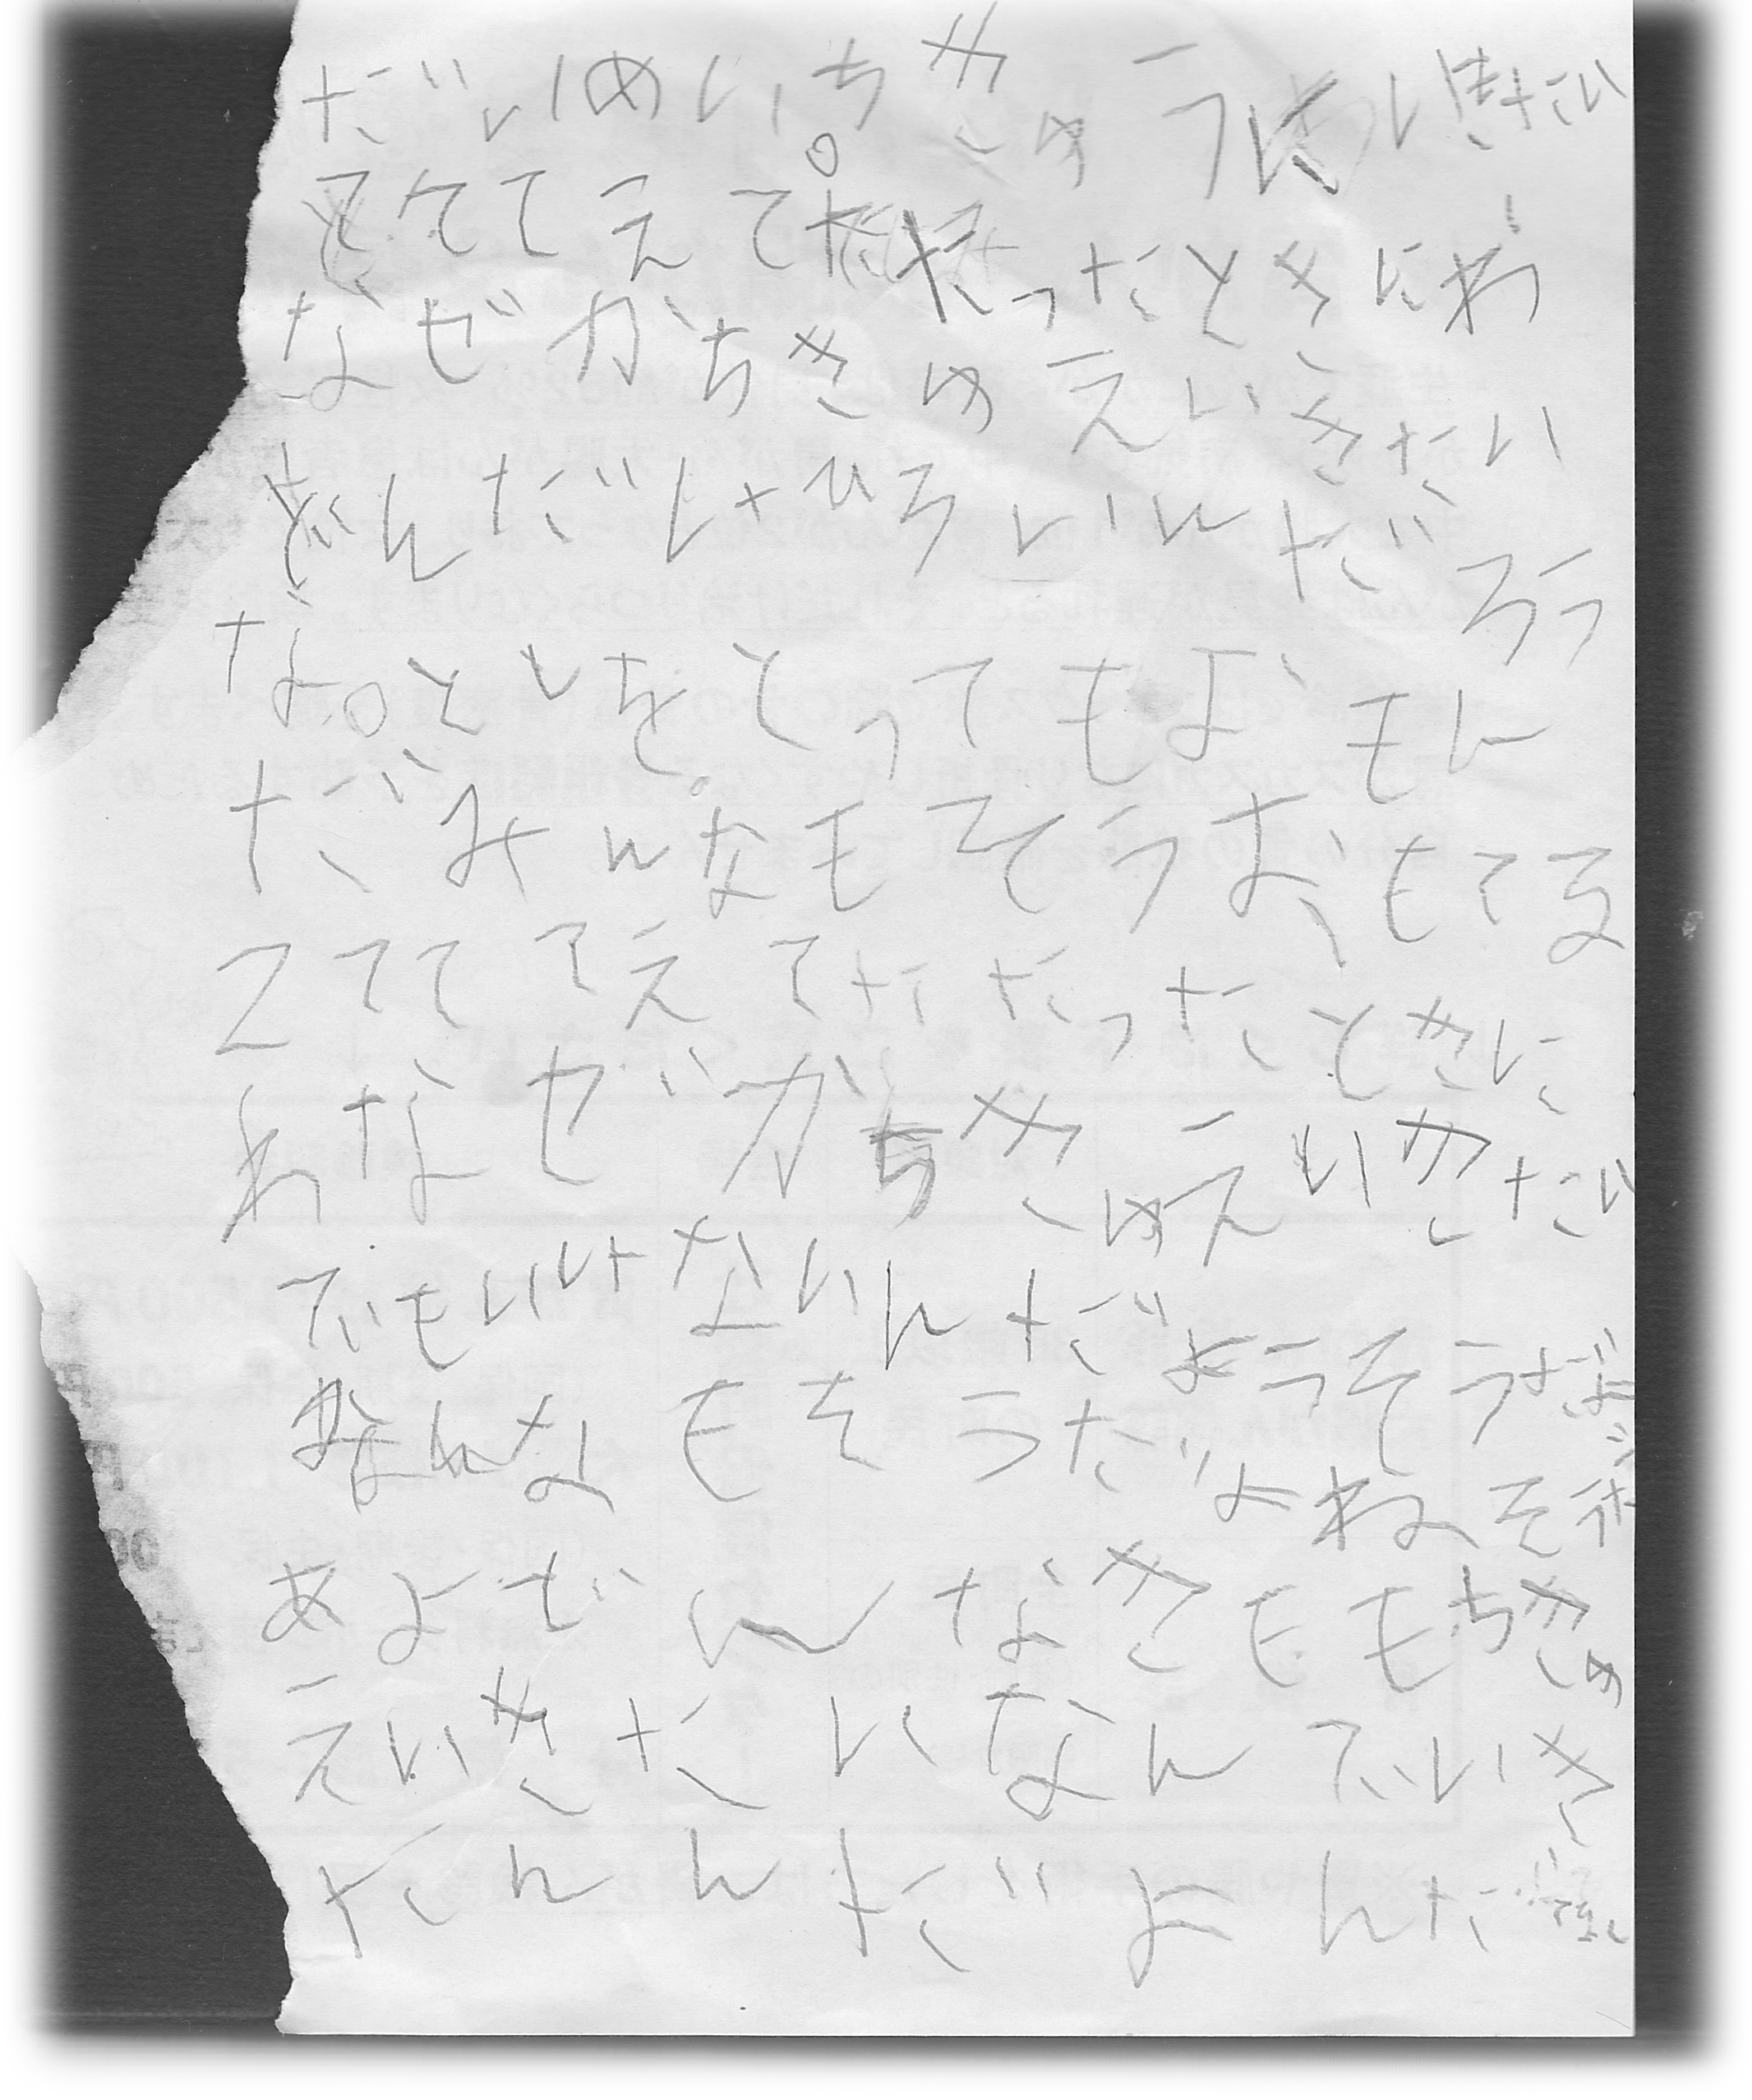 だいめいちきゅうにいきたい
てててえてただったときにわ
なぜかちきゅえいきたい
ざんだしゃひろいんだろう
な。といをとってもおもん
だみんなもそうおもてる
ててててえてただったときに
わなぜかちきゅえいきたい
でもいけないんだようそうだよ
みんなもそうだよねそ
あよぜんなきももちきゅ
えいきたいなんでいき
たんんだよんだ